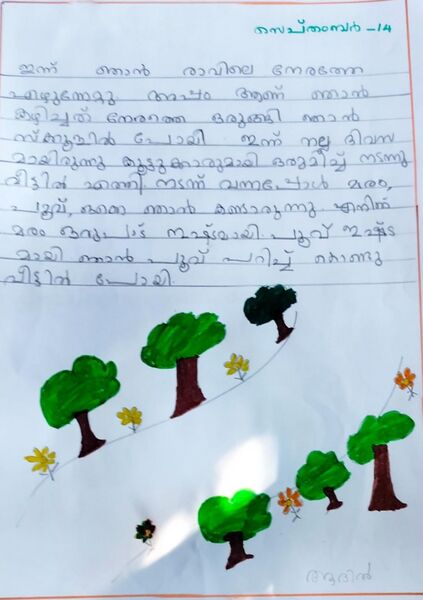 സെപ്തംമ്പർ -14
ഇന്ന് ഞാൻ രാവിലെ നേരത്തേ
എഴുന്നേറ്റു അപ്പം ആണ് ഞാൻ
കഴിച്ചത് നേരത്തെ ഒരുങ്ങി ഞാൻ
സ്ക്കൂളിൽ പോയി ഇന്ന് നല്ല ദിവസ
മായിരുന്നു കൂട്ടുക്കാരുമായി ഒരുമിച്ച് നടന്നു
വീട്ടിൽ എത്തി നടന്ന് വന്നപ്പോൾ മരം,
പൂവ്, ഒക്കെ ഞാൻ കണ്ടാരുന്നു എനിക്ക്
മരം ഒരുപാട് ഇഷ്ടമായി പൂവ് ഇഷ്ട
മായി ഞാൻ പൂവ് പറിച്ച് കൊണ്ടു
വീട്ടിൽ പോയി.
ആദിൻ